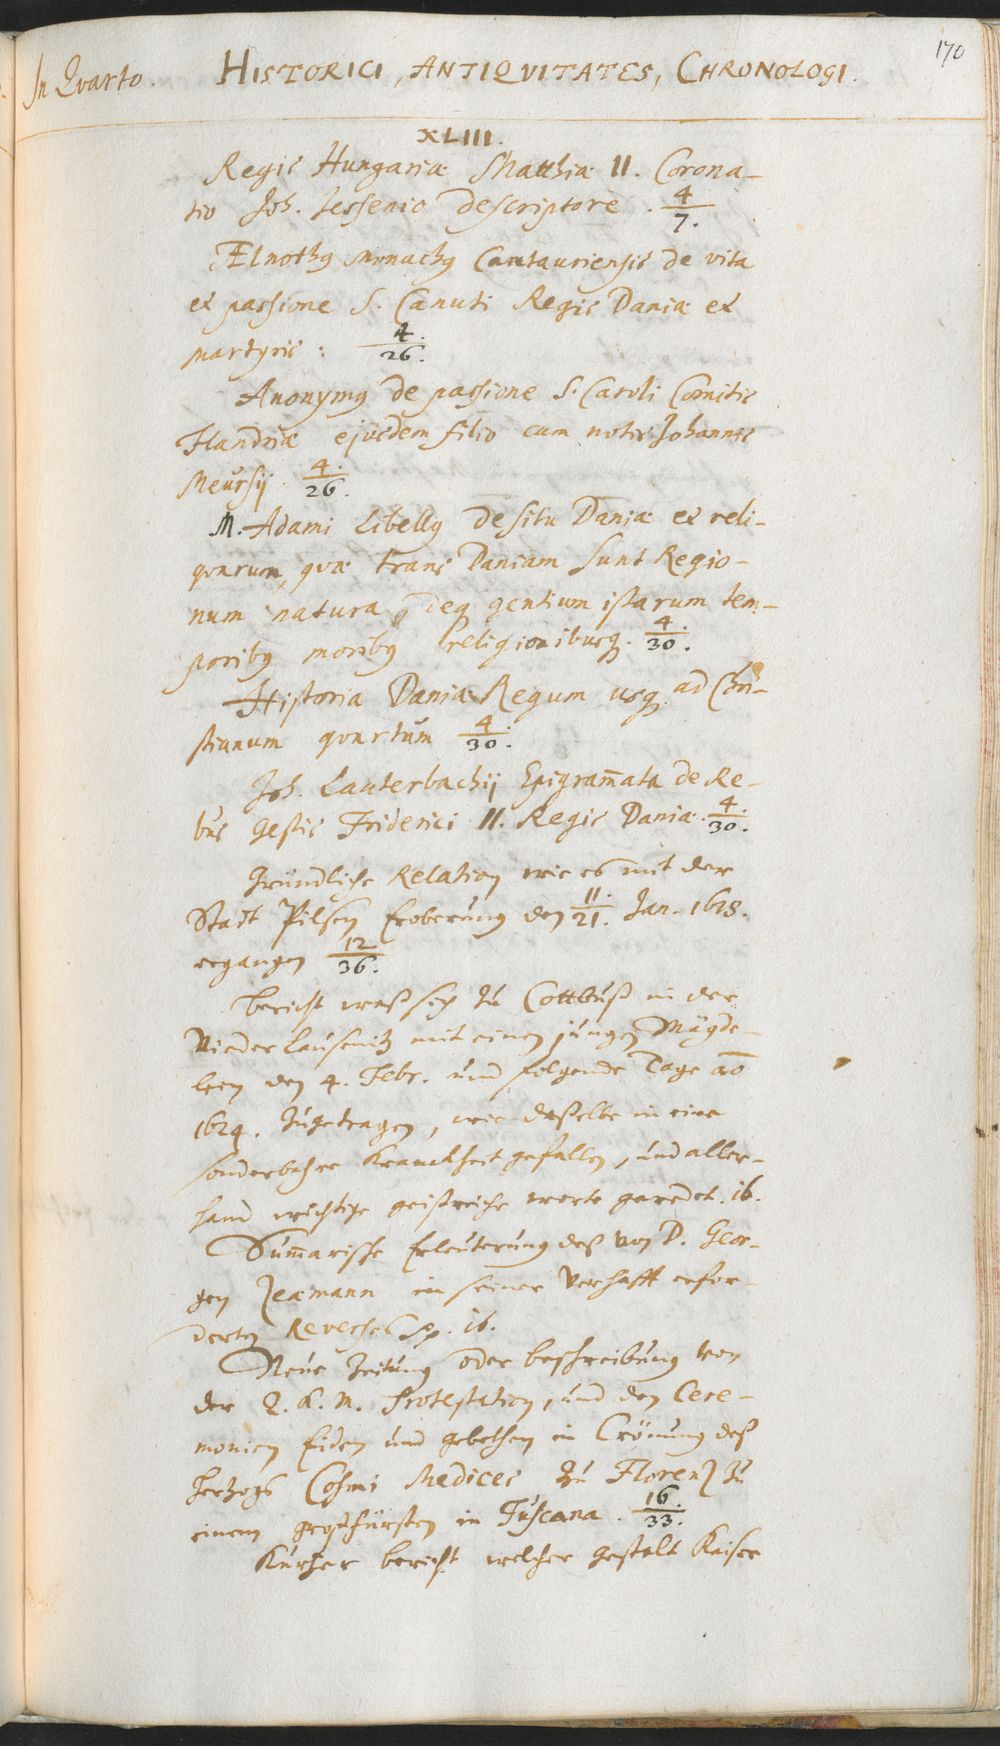 170
In Qvarto. HISTORICI, ANTIQVITATES, CHRONOLOGI.
XLIII.
Regis Hungariæ Matthiæ II. Corona-
tio Joh. Jessenio descriptore. 4/7.
Ælnothꝰ Monachꝰ Cantauriensis de vita
et passione S. Canuti Regis Daniæ et
martyris: 4./26.
Anonymꝰ de passione S. Caroli Comitis
Flandriæ ejusdem filio cum notis Johannis
Meursij. 4./26.
M. Adami Libellꝰ de situ Daniæ et reli-
qvarum, qvæ trans Daniam sunt Regio-
num natura, deq gentium istarum tem-
poribꝰ moribꝰ religionibusq. 4./30.
Historia Daniæ Regum usq ad Chri-
stianum qvartum 4./30.
Joh. Lauterbachij Epigram̄ata de Re-
bus Gestis Friderici II. Regis Daniæ. 4./30.
Gründliche Relation wie es mit der
Stadt Pilsen Eroberung den 11./21. Jan. 1618.
ergangen 12/36.
Bericht waß sich zu Cottbuß in der
Nieder Lausenitz mit einen jungen Mägde-
lein den 4. Febr. und folgende Tage aō
1624. zugetragen, wie daßelbe in eine
sonderbahre Kranckheit gefallen, und aller-
hand wichtige geistreiche worte geredet. ib.
Sum̄arische Erleuterung deß von D. Geor-
gen Zeæmann in seiner Verhafft erfor-
derten Reverses p. ib.
Neue Zeitung oder beschreibung von
der R. K. M. Protestation, und den Cere-
monien Eiden und gebethen in Crönung deß
Herzogs Cosmi Medices zu Florenz zu
einem großfürsten in Tuscana. 16./33.
Kurzer bericht welcher gestalt Kaiser